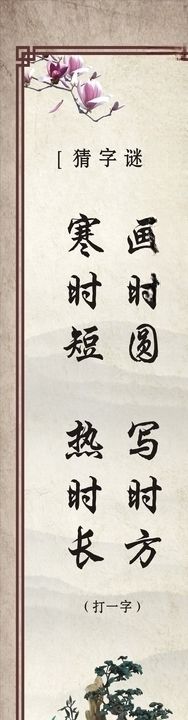 [ 猜字谜
画时圆 写时方
寒时短 热时长
（打一字）